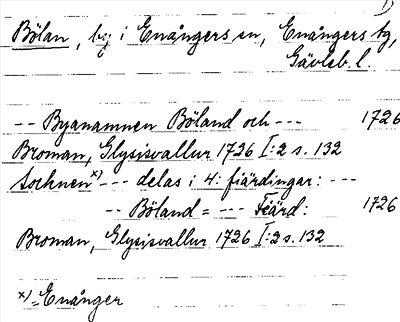 1)
Bölan, by i Enångers sn, Enångers tg,
Gävleb. l.
-- Byanamnen Böland och --- 1726
Broman, Glysisvallur 1726 I:2 s. 132
Sochnen x) --- delas i 4: fiärdingar: ---
-- Böland = --- Fiärd: 1726
Broman, Glysisvallur 1726 I:2 s. 132
x) = Enånger